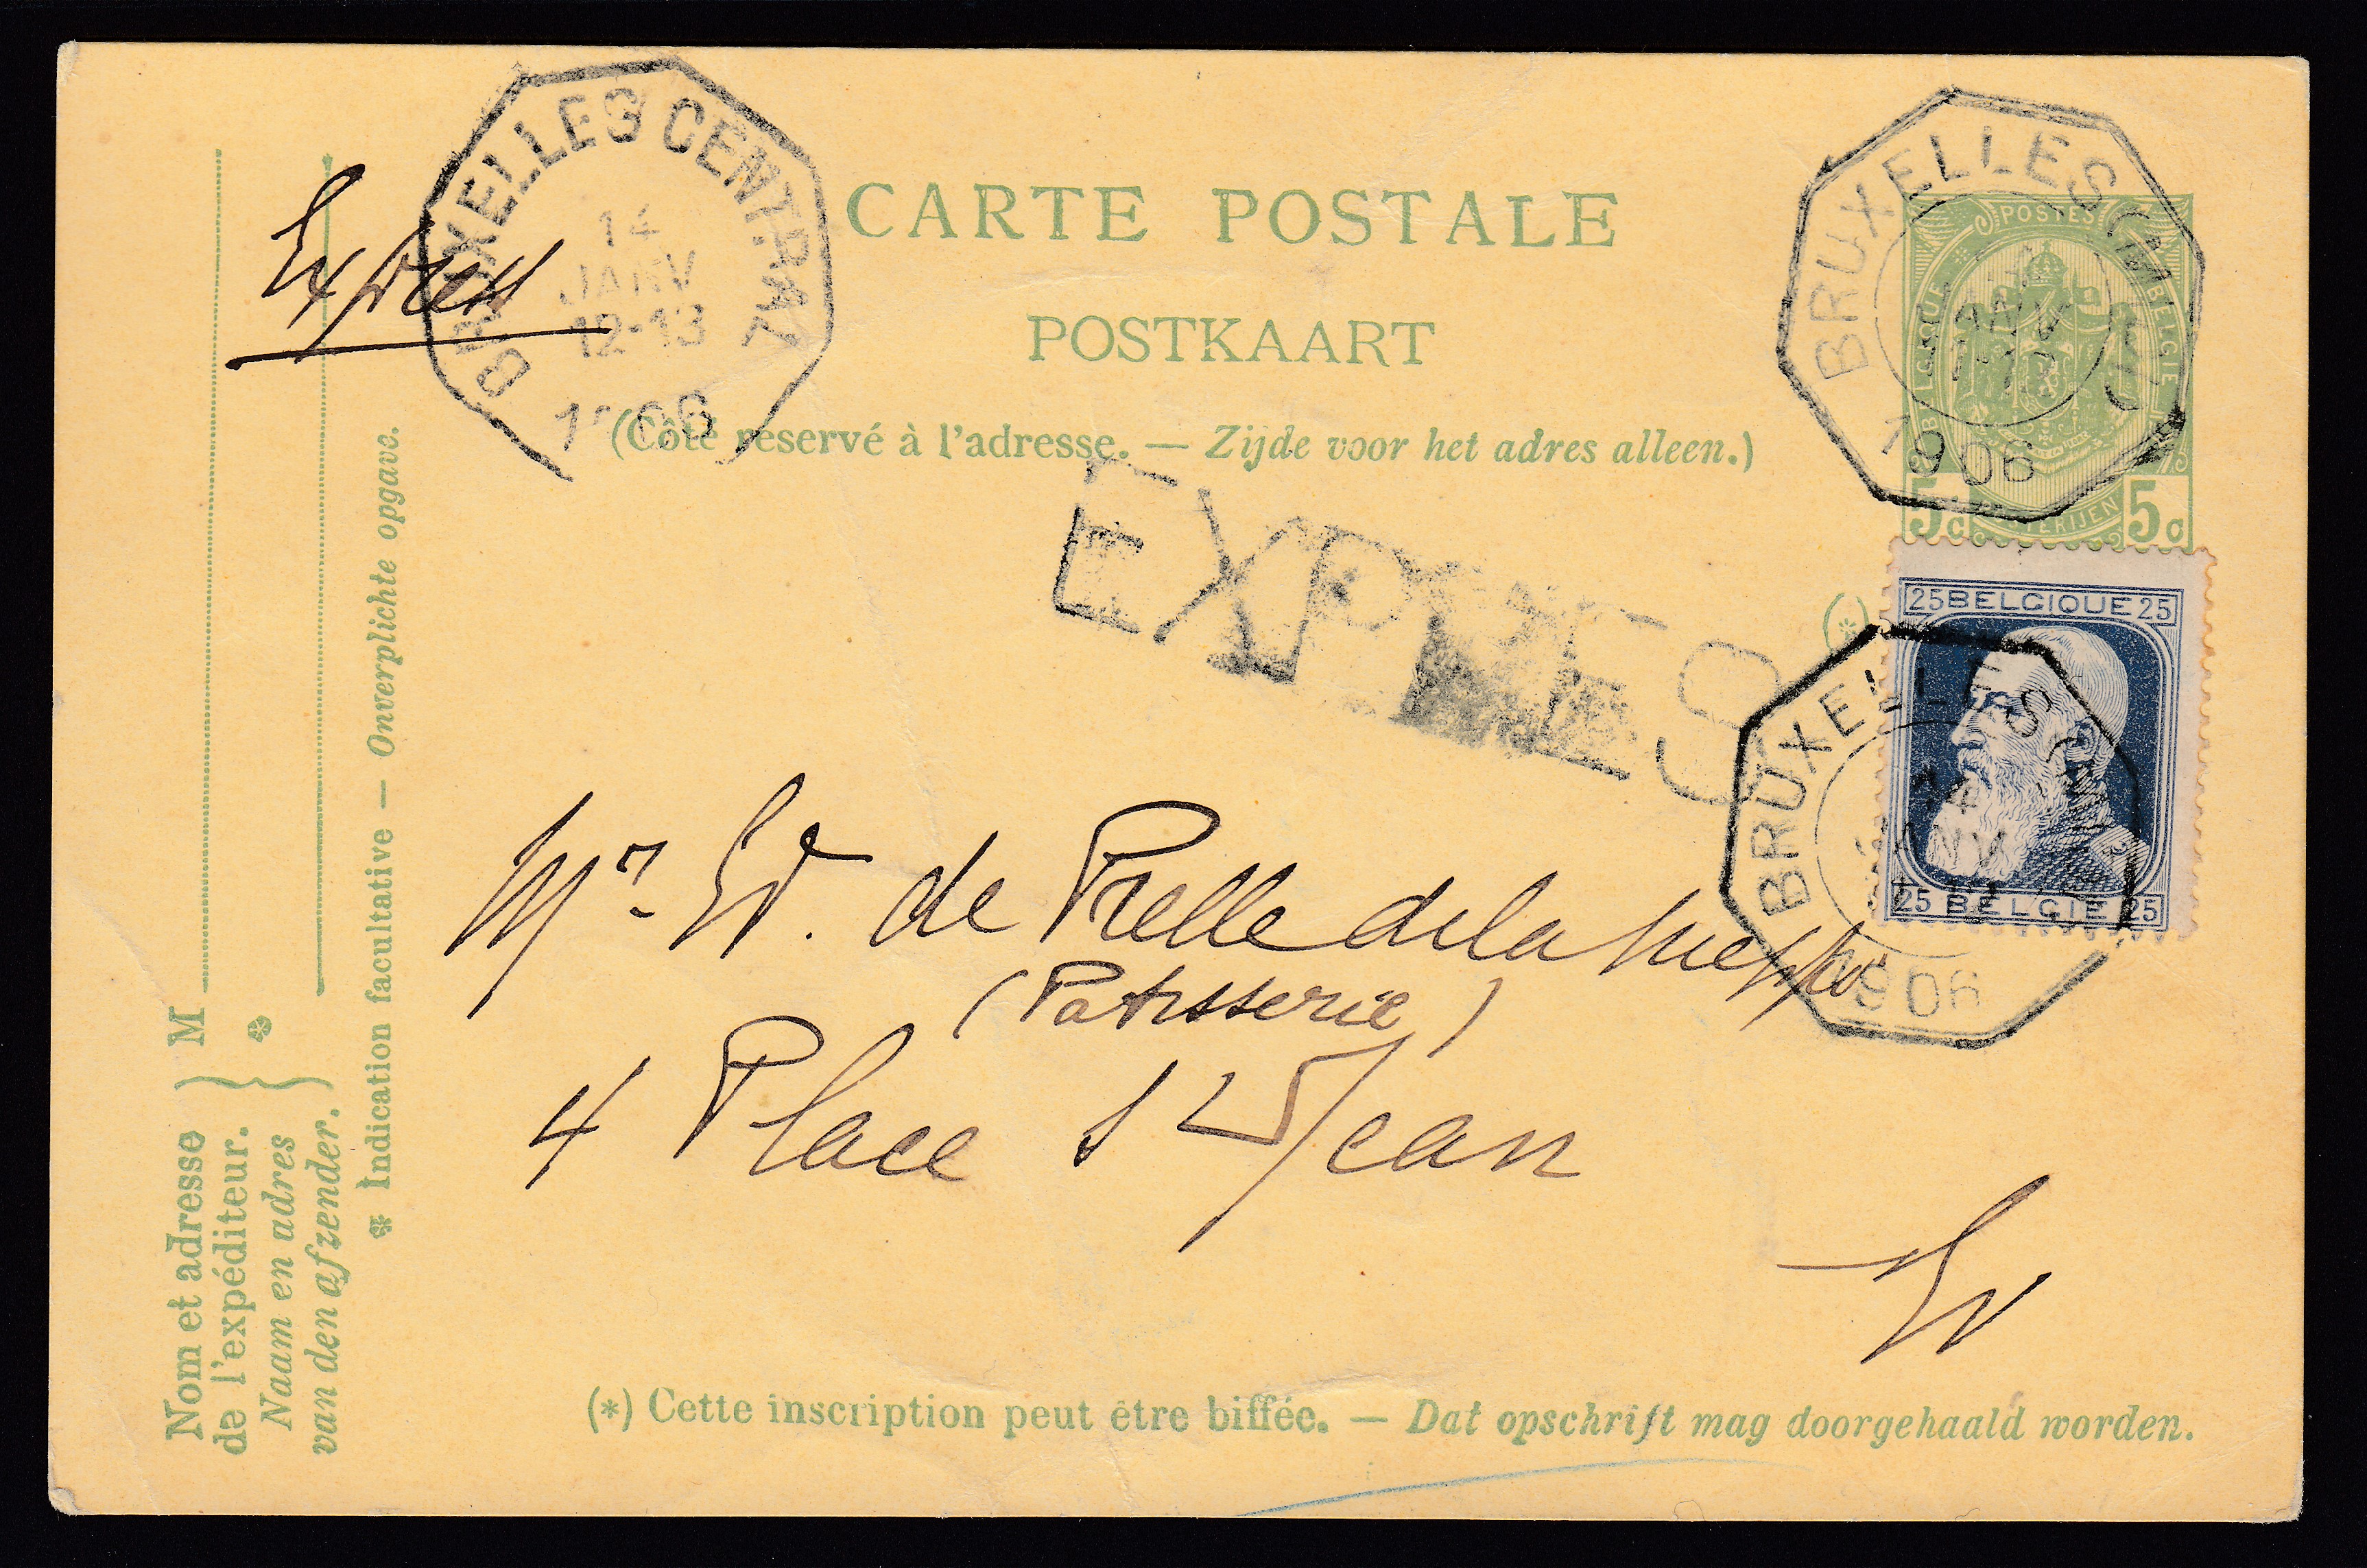 BRUXELLES CENTRAL
14
JANV
12-13
Express
CARTE POSTALE
POSTKAART
(Côté réservé à l'adresse. — Zijde voor het adres alleen.)
BRUXELLES
JANV
1906
POSTES
BELGIQUE
BELGIE
5c 5c
EXPRES
(*)
25 BELGIQUE 25
25 BELGIE 25
BRUXELLES
14
JANV
1906
Mr. Ed. de Prelle de la Nieppe
(Patisserie)
4 Place St Jean
EV
(*) Cette inscription peut être biffée. — Dat opschrift mag doorgehaald worden.
Nom et adresse
de l'expéditeur.
Naam en adres
van den afzender.
} M
} *
* Indication facultative — Onverplichte opgave.